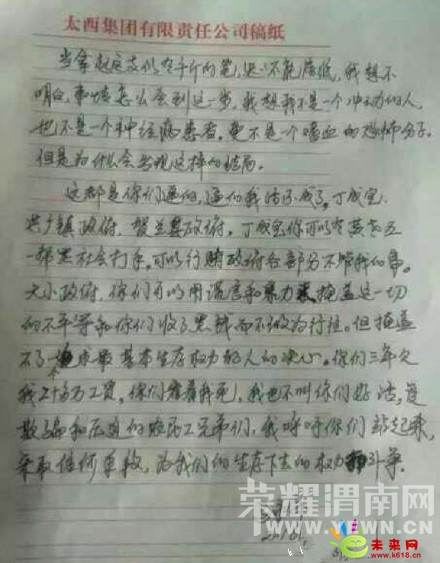 太西集团有限责任公司稿纸
当拿起这支似有千斤的笔,迟迟不能落纸,我想不
明白,事情怎么会到这一步,我想我不是一个冲动的人,
也不是一个神经病患者,更不是一个嗜血的恐怖分子。
但是为什么会出现这样的结局。
这都是你们逼的,逼的我活不成了,丁成宝,
洪广镇政府,贺兰县政府,丁成宝你可以
一帮黑社会打手,可以行贿政府各部分不管我的事。
大小政府,你们可以用谎言和暴力来掩盖这一切
的不平等和你们收了黑钱而不做为行径。但掩盖
不了 基本生存权力的人的决心。你们三年欠
我二十多万工资,你们看着我死,我也不叫你们好活,受
欺骗和压迫的农民工兄弟们,我呼吁你们站起来,
采取任何手段,为我们的生存下去的权力斗争。
荣耀渭南网
YIWN.CN
未来网
www.k618.cn